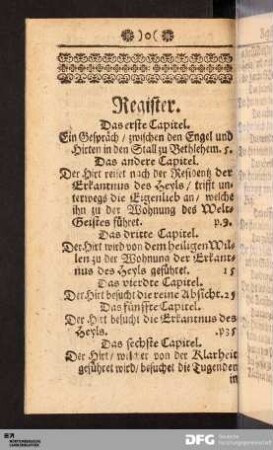 )o(
Register.
Das erste Capitel.
Ein Gespräch / zwischen den Engel und
Hirten in den Stall zu Bethlehem. 5.
Das andere Capitel.
Der Hirt reiset nach der Residentz der
Erkantnus des Heyls / trifft un-
terwegs die Eigenlieb an / welche
ihn zu der Wohnung des Welt-
Geistes führet. p.9.
Das dritte Capitel.
Der Hirt wird von dem heiligen Wil-
len zu der Wohnung der Erkant-
nus des Heyls geführet. 15
Das vierdte Capitel.
Der Hirt besucht die reine Absicht. 25
Das fünffte Capitel.
Der Hirt besucht die Erkantnus des
Heyls. p35
Das sechste Capitel.
Der Hirt / welcher von der Klarheit
geführet wird / besuchet die Tugenden
in
DFG
Deutsche
Forschungsgemeinschaft